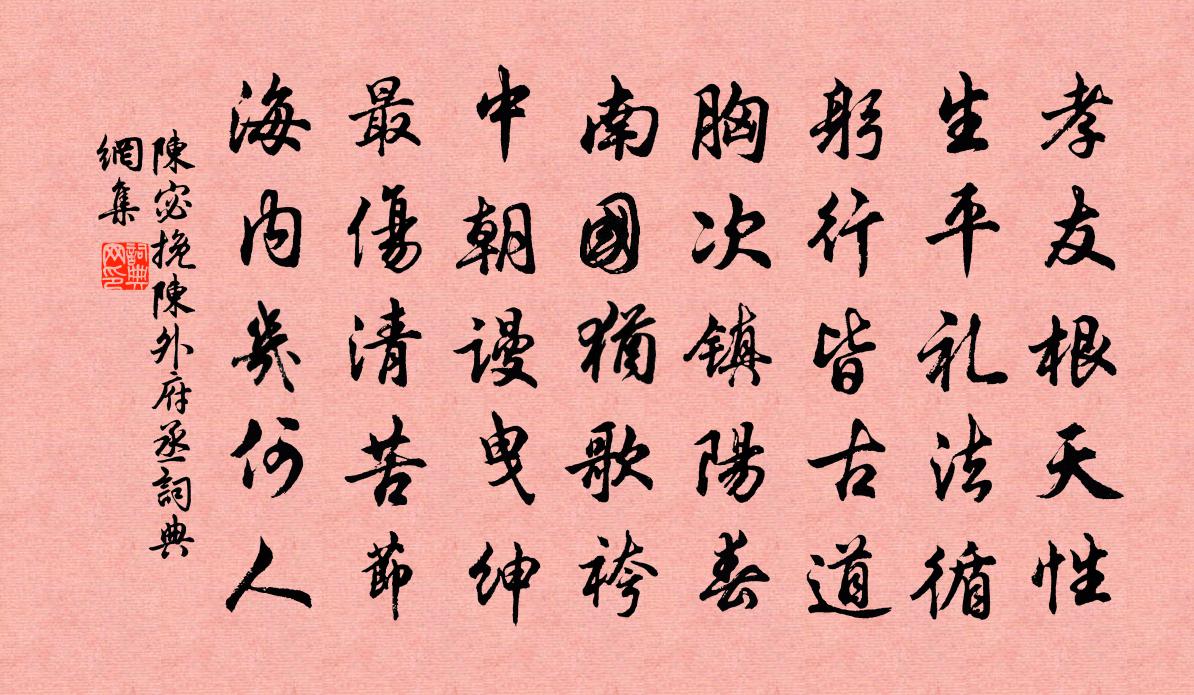 孝友根天性
生平礼法循
躬行皆古道
胸次镇陽春
南國猶歌袴
中朝謾曳紳
最傷清苦節
海内幾何人
陳宓挽陳外府丞詞典
網集
詞典
网印